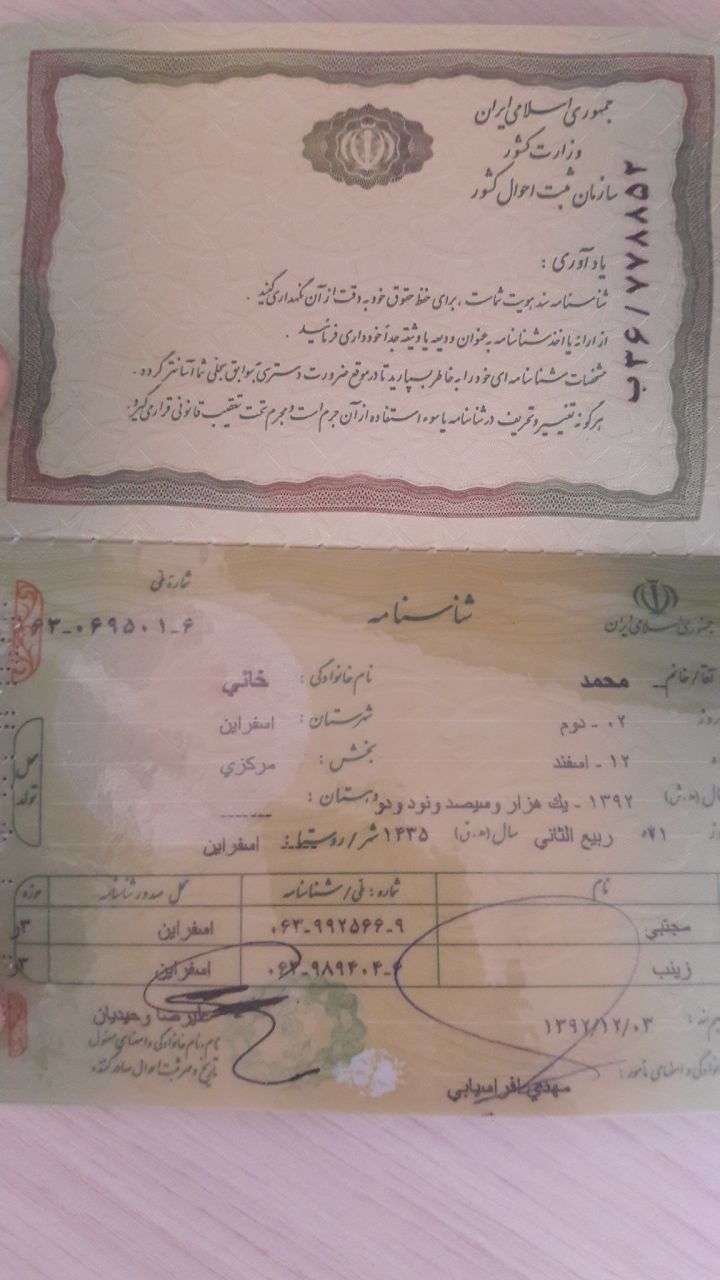 جمهوری اسلامی ایران
وزارت کشور
سازمان ثبت احوال کشور
ب۳۶/۷۷۸۸۵۲
یادآوری :
شناسنامه سند هویت شماست ، برای حفظ حقوق خود به دقت از آن نگهداری کنید .
از ارائه یا اخذ شناسنامه به عنوان ودیعه یا وثیقه جداً خودداری فرمائید .
مشخصات شناسنامه ای خود را به خاطر بسپارید تا در موقع ضرورت دسترسی به سوابق سجلی شما آسانتر گردد .
هرگونه تغییر و تحریف در شناسنامه یا سوء استفاده از آن جرم است و مجرم تحت تعقیب قانونی قرار می گیرد.
جمهوری اسلامی ایران
شناسنامه
شماره ملی
۶۳-۰۶۹۵۰۱-۶
آقا/خانم محمد نام خانوادگی : خاني
روز ۰۲ - دوم شهرستان : اسفراين
۱۲ - اسفند بخش : مرکزي
سال (ه.ش) ۱۳۹۲ - يك هزار و سيصد و نود و دو دهستان : ------
ربيع الثاني سال (ه.ق) ۱۴۳۵ شهر/روستا : اسفراين
محل تولد
نام شماره : ملی/شناسنامه محل صدور شناسنامه حوزه
مجتبي ۰۶۳-۹۹۲۵۶۶-۹ اسفراين ۳
زينب ۰۶۳-۹۸۹۴۰۴-۶ اسفراين ۳
۱۳۹۲/۱۲/۰۳
عليرضا وحيديان
نام، نام خانوادگی و امضای مسئول
تاریخ و مهر ثبت احوال صادر کننده
خانوادگی و امضای مأمور :
مهدي افراسيابي